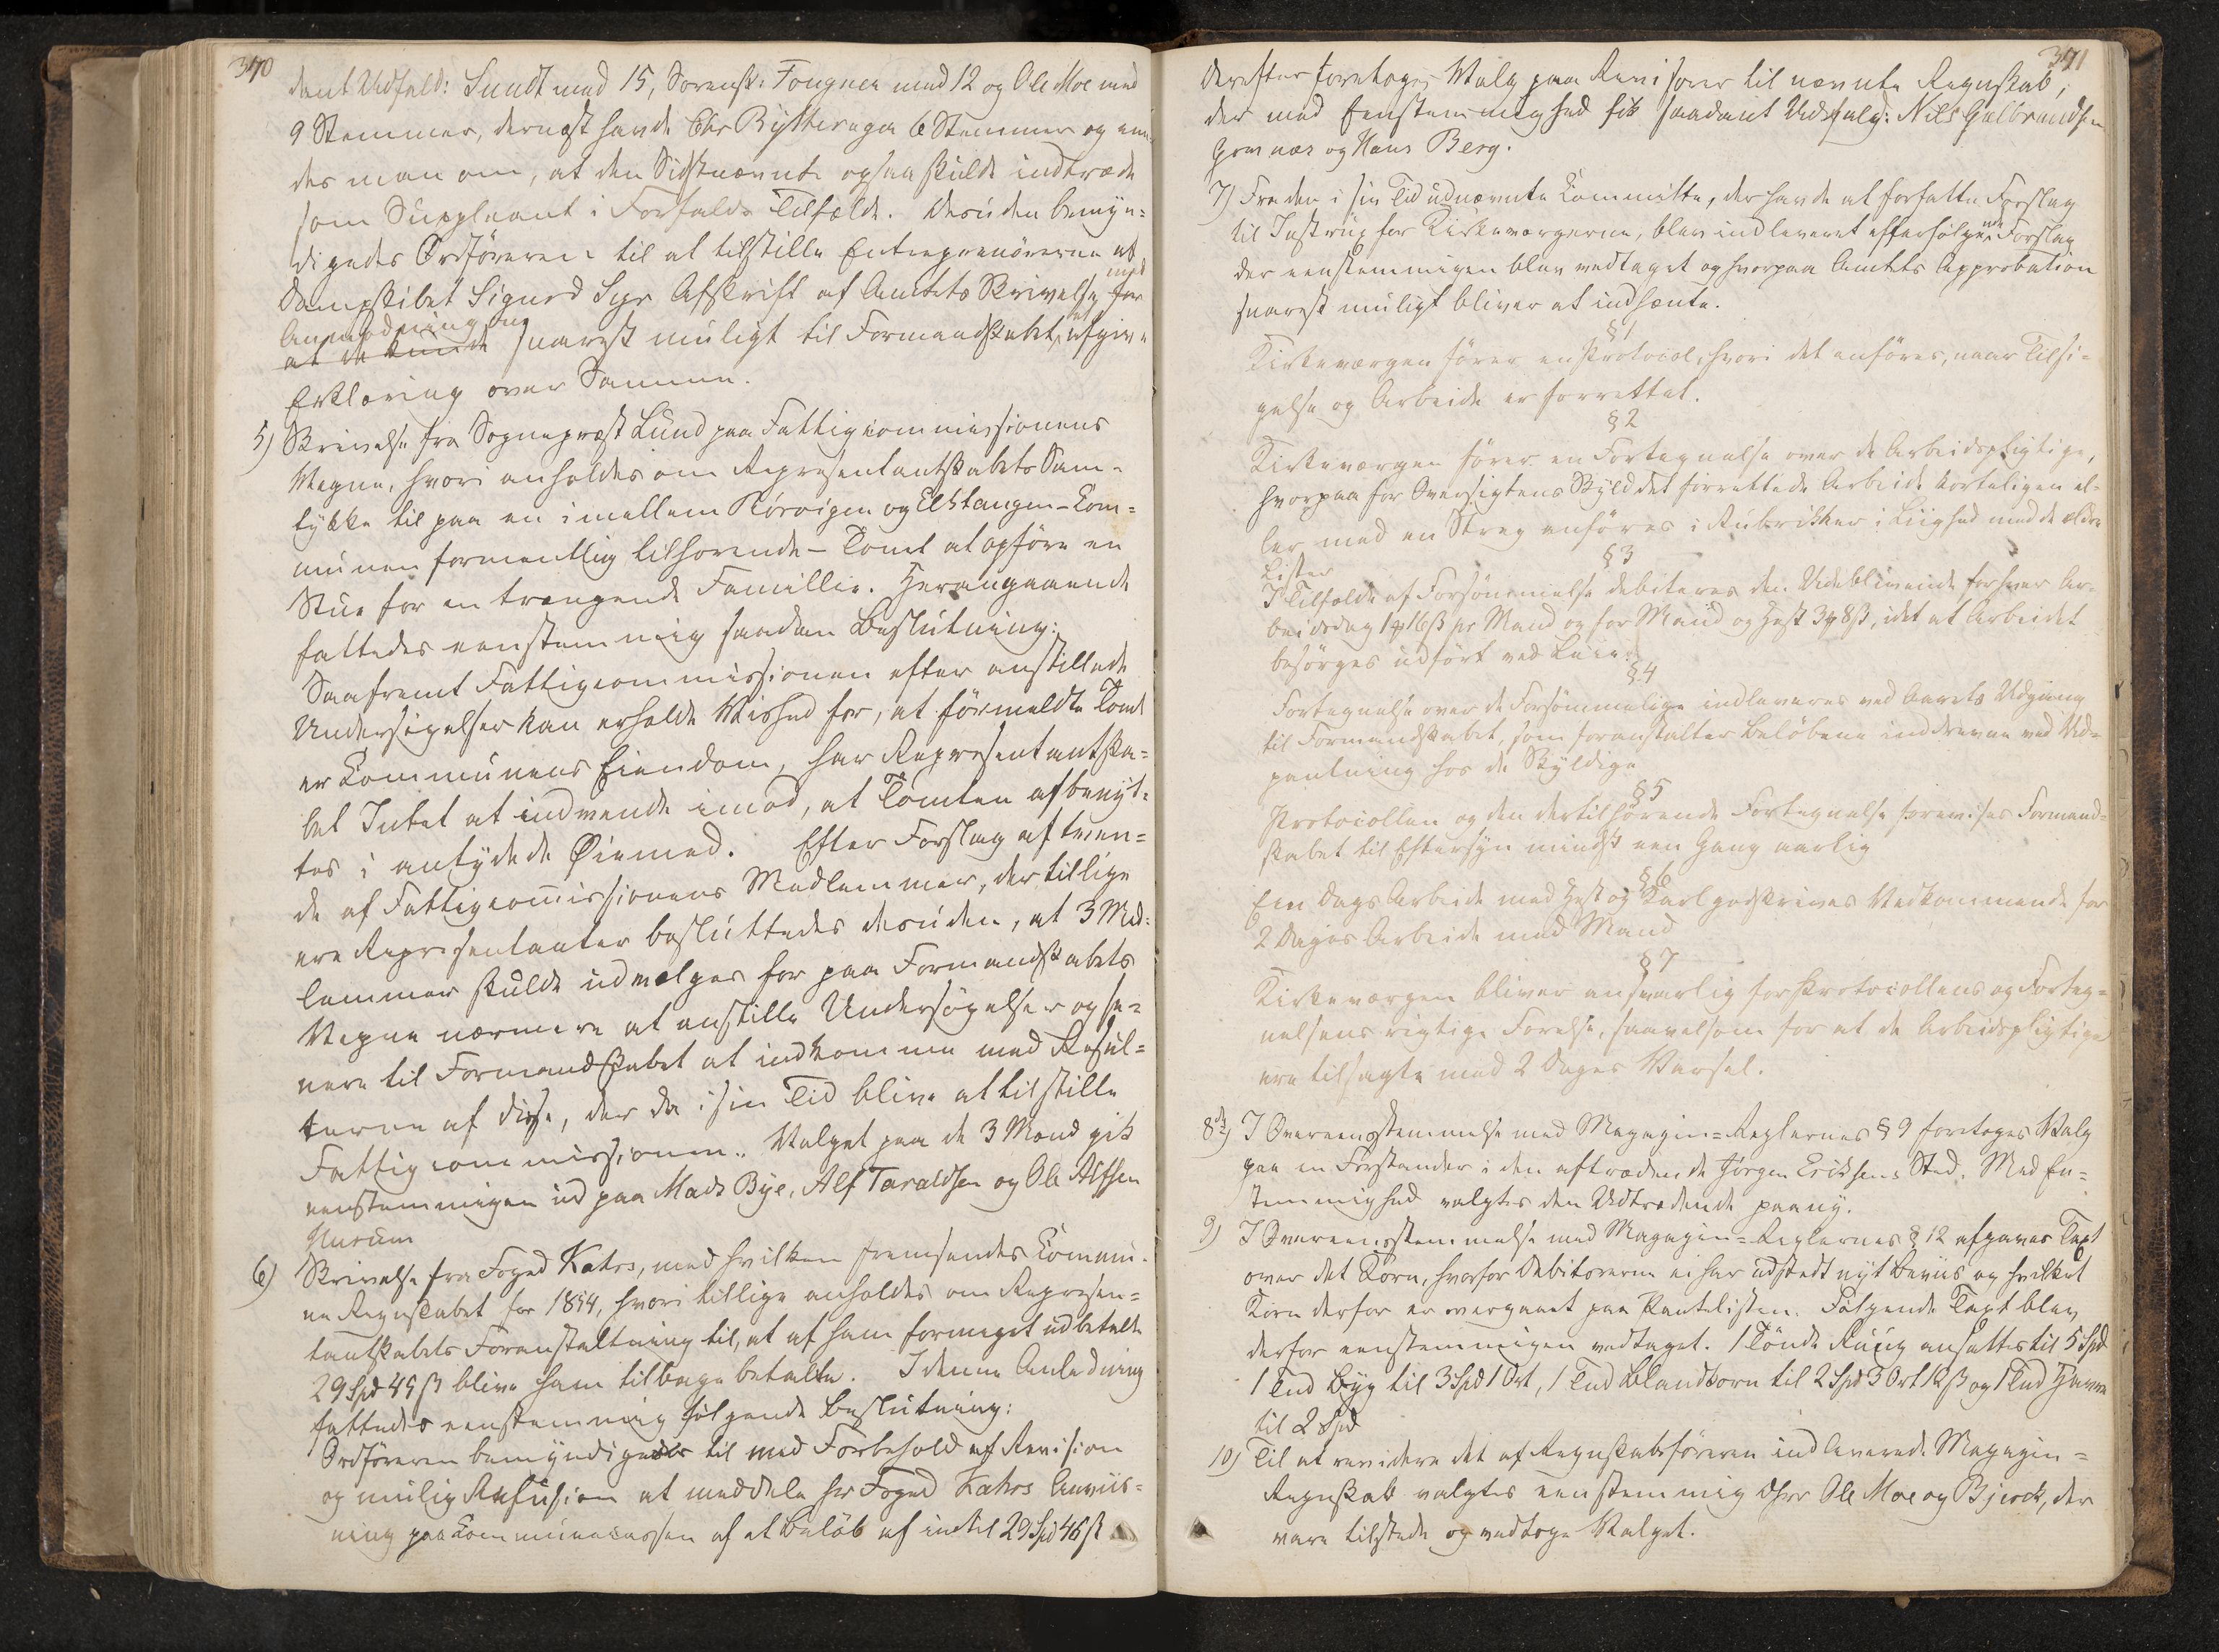 370
dant Udfald: Sundt med 15, Sorensk: Fougner med 12 og Ole Moe med
9 Stemmer, dernæst havde Chr Bÿtteragen 6 Stemmer og eene-
des man om, at den Sidstnævnte ogsaa skulde indtræde
som Suppleant i Forfalds Tilfælde. Desuden bemyn=
digedes Ordføreren til at tilstille Entreprenørerne af
Dampskibet Sigurd Syr Afskrift af Amtets Skrivelse, med
Anmodning om
at de kunde snarest muligt til Formandskabet at afgive
Erklæring over Samme.
5) Skrivelse fra Sognepræst Lund paa Fattigcommissionens
Vegne, hvori anholdes om Representantskabets Sam-
tykke til paa en imellem Rørvigen og Elstangen - Com=
munen formentlig tilhørende - Tomt at opføre en
Stue for en trængende Famillie. Herangaaende
fattedes eenstemmig saadan Beslutning:
Saafremt Fattigcommissionen efter anstillede
Undersøgelser kan erholde Vished for, at førmeldte Tomt
er Communens Eiendom, har Representantska=
bet Intet at indvende imod, at Tomten afbenyt=
tes i antydede Øiemed. Efter Forslag af tven=
de af Fattigcommissionens Medlemmer, der tillige
ere Representanter besluttedes desuden, at 3 Med=
lemmer skulde udvælges for paa Formandskabets
Vegne nærmere at anstille Undersøgelser og se=
nere til Formandskabet at indkomme med Resul=
taterne af disse, der da i sin Tid blive at tilstille
Fattigcommissionen. Valget paa de 3 Mand gik
eenstemmigen ud paa Mads Bye, Alf Taraldsen og Ole Alfsen
Unsum
6) Skrivelse fra Foged Kahrs, med hvilken fremsendes Commu-
ne Regnskabet for 1854, hvori tillige anholdes om Represen=
tantskabets Foranstaltning til, at af ham formeget udbetalte
29 Spd 45 ß blive ham tilbagebetalte. I denne Anledning
fattedes eenstemmig følgende Beslutning:
Ordføreren bemyndigedes til med Forbehold af Revision
og mulig Refusion at meddele Hr Foged Kahrs Anviis=
ning paa Communecassen af et Beløb af indtil 29 Spd 46 ß
371
Derefter foretoges Valg paa Revisorer til nævnte Regnskab,
der med Eenstemmighed fik saadant Udfald: Nils Gulbrandsen
Homnæs og Hans Berg.
7) Fra den i sin Tid udnævnte Committe, der havde at forfatte Forslag
til Instrux for Kirkeværgerne, blev indleveret efterfølgende Forslag
der eenstemmigen blev vedtaget og hvorpaa Amtets Approbation
snarest muligt bliver at indhente.
§ 1
Kirkeværgen fører en Protocol, hvori det anføres, naar Tilsi=
gelse og Arbeide er forrettet.
§ 2
Kirkeværgen fører en Fortegnelse over de Arbeidspligtige,
hvorpaa for Oversigtens Skyld det forrettede Arbeide korteligen el=
ler med en Streg anføres i Rubrikker i Liighed med de ældre
Lister
§ 3
I Tilfælde af Forsømmelse debiteres den Udeblivende for hver Ar-
beidsdag 1 # 16 ß pr Mand og for Mand og Hest 3 # 8 ß, idet at Arbeidet
besørges udført ved Leie.
§ 4
Fortegnelse over de Forsømmelige indleveres ved Aarets Udgang
til Formandskabet, som foranstalter Beløbene inddrevne ved Ud=
pantning hos de Skyldige
§ 5
Protocollen og den dertil hørende Fortegnelse forevises Formand=
skabet til Eftersyn mindst een Gang aarlig
§ 6
Een Dags Arbeide med Hest og Karl godskrives Vedkommende for
2 Dages Arbeide med Mand
§ 7
Kirkeværgen bliver ansvarlig for Protocollens og Forteg=
nelsens rigtige Førelse, saavelsom for at de Arbeidspligtige
ere tilsagte med 2 Dages Varsel.
8de) I Overeensstemmelse med Magazin=Reglernes § 9 foretoges Valg
paa en Forstander i den aftrædende Jørgen Eriksens Sted. Med En=
stemmighed valgtes den Udtrædende paany.
9) I Overeensstemmelse med Magazin=Reglernes § 12 afgaves Taxt
over det Korn, hvorfor Debitorerne ei har udstedt nyt Beviis og hvilket
Korn derfor er overgaaet paa Pantelisten. Følgende Taxt blev
derfor eenstemmigen vedtaget. 1 Tønde Rug ansattes til 5 Spd
1 Tnd Byg til 3 Spd 1 Ort, 1 Tnd Blandkorn til 2 Spd 3 Ort 12 ß og 1 Tnd Havre
til 2 Spd
10) Til at revidere det af Regnskabsføreren indleverede Magazin=
Regnskab valgtes eenstemmig DHrr Ole Moe og Bjerck, der
vare tilstede og vedtoge Valget.